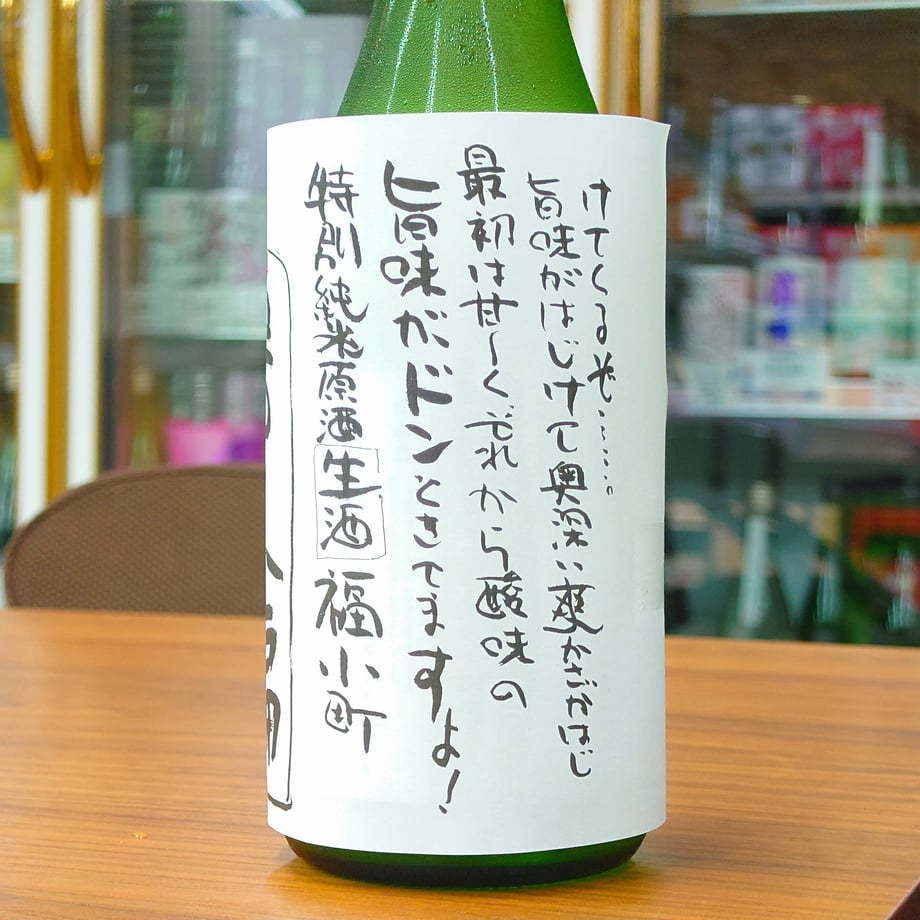 特別純米原酒 生酒 福小町
旨味がドンときてますよ!
最初は甘〜くそれから酸味の
旨味がはじけて奥深い爽かさがはじ
けてくるぞ……。